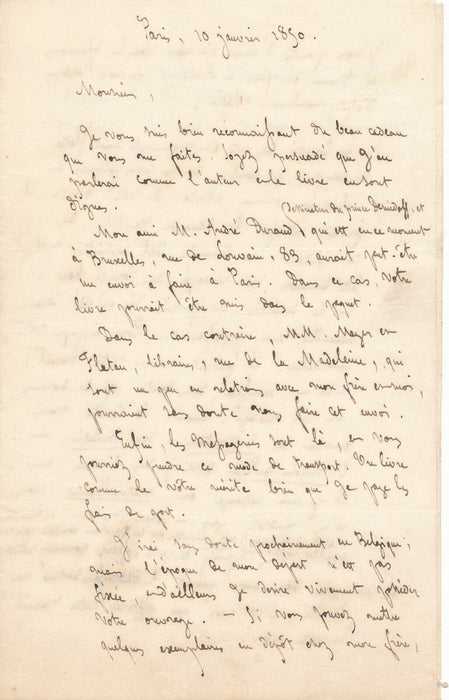 Paris, 10 janvier 1850.
Monsieur,
Je vous suis bien reconnaissant du beau cadeau
que vous me faites. Soyez persuadé que j'en
parlerai comme l'auteur et le livre en sont
dignes.
du prince Demidoff, et
Mon ami M. André Durand, qui est en ce moment
à Bruxelles, rue de Louvain, 83, aurait peut-être
un envoi à faire à Paris. Dans ce cas, votre
livre pourrait être mis dans le paquet.
Dans le cas contraire, MM. Mayer et
Flatau, libraires, rue de la Madeleine, qui
sont un peu en relations avec mon frère et moi,
pourraient sans doute nous faire cet envoi.
Enfin, les Messageries sont là, et vous
pourriez prendre ce mode de transport. Un livre
comme le vôtre mérite bien que je paye les
frais de port.
J'irai sans doute prochainement en Belgique;
mais l'époque de mon départ n'est pas
fixée, et d'ailleurs je désire vivement posséder
votre ouvrage. — Si vous pouvez mettre
quelques exemplaires en dépôt chez mon frère,